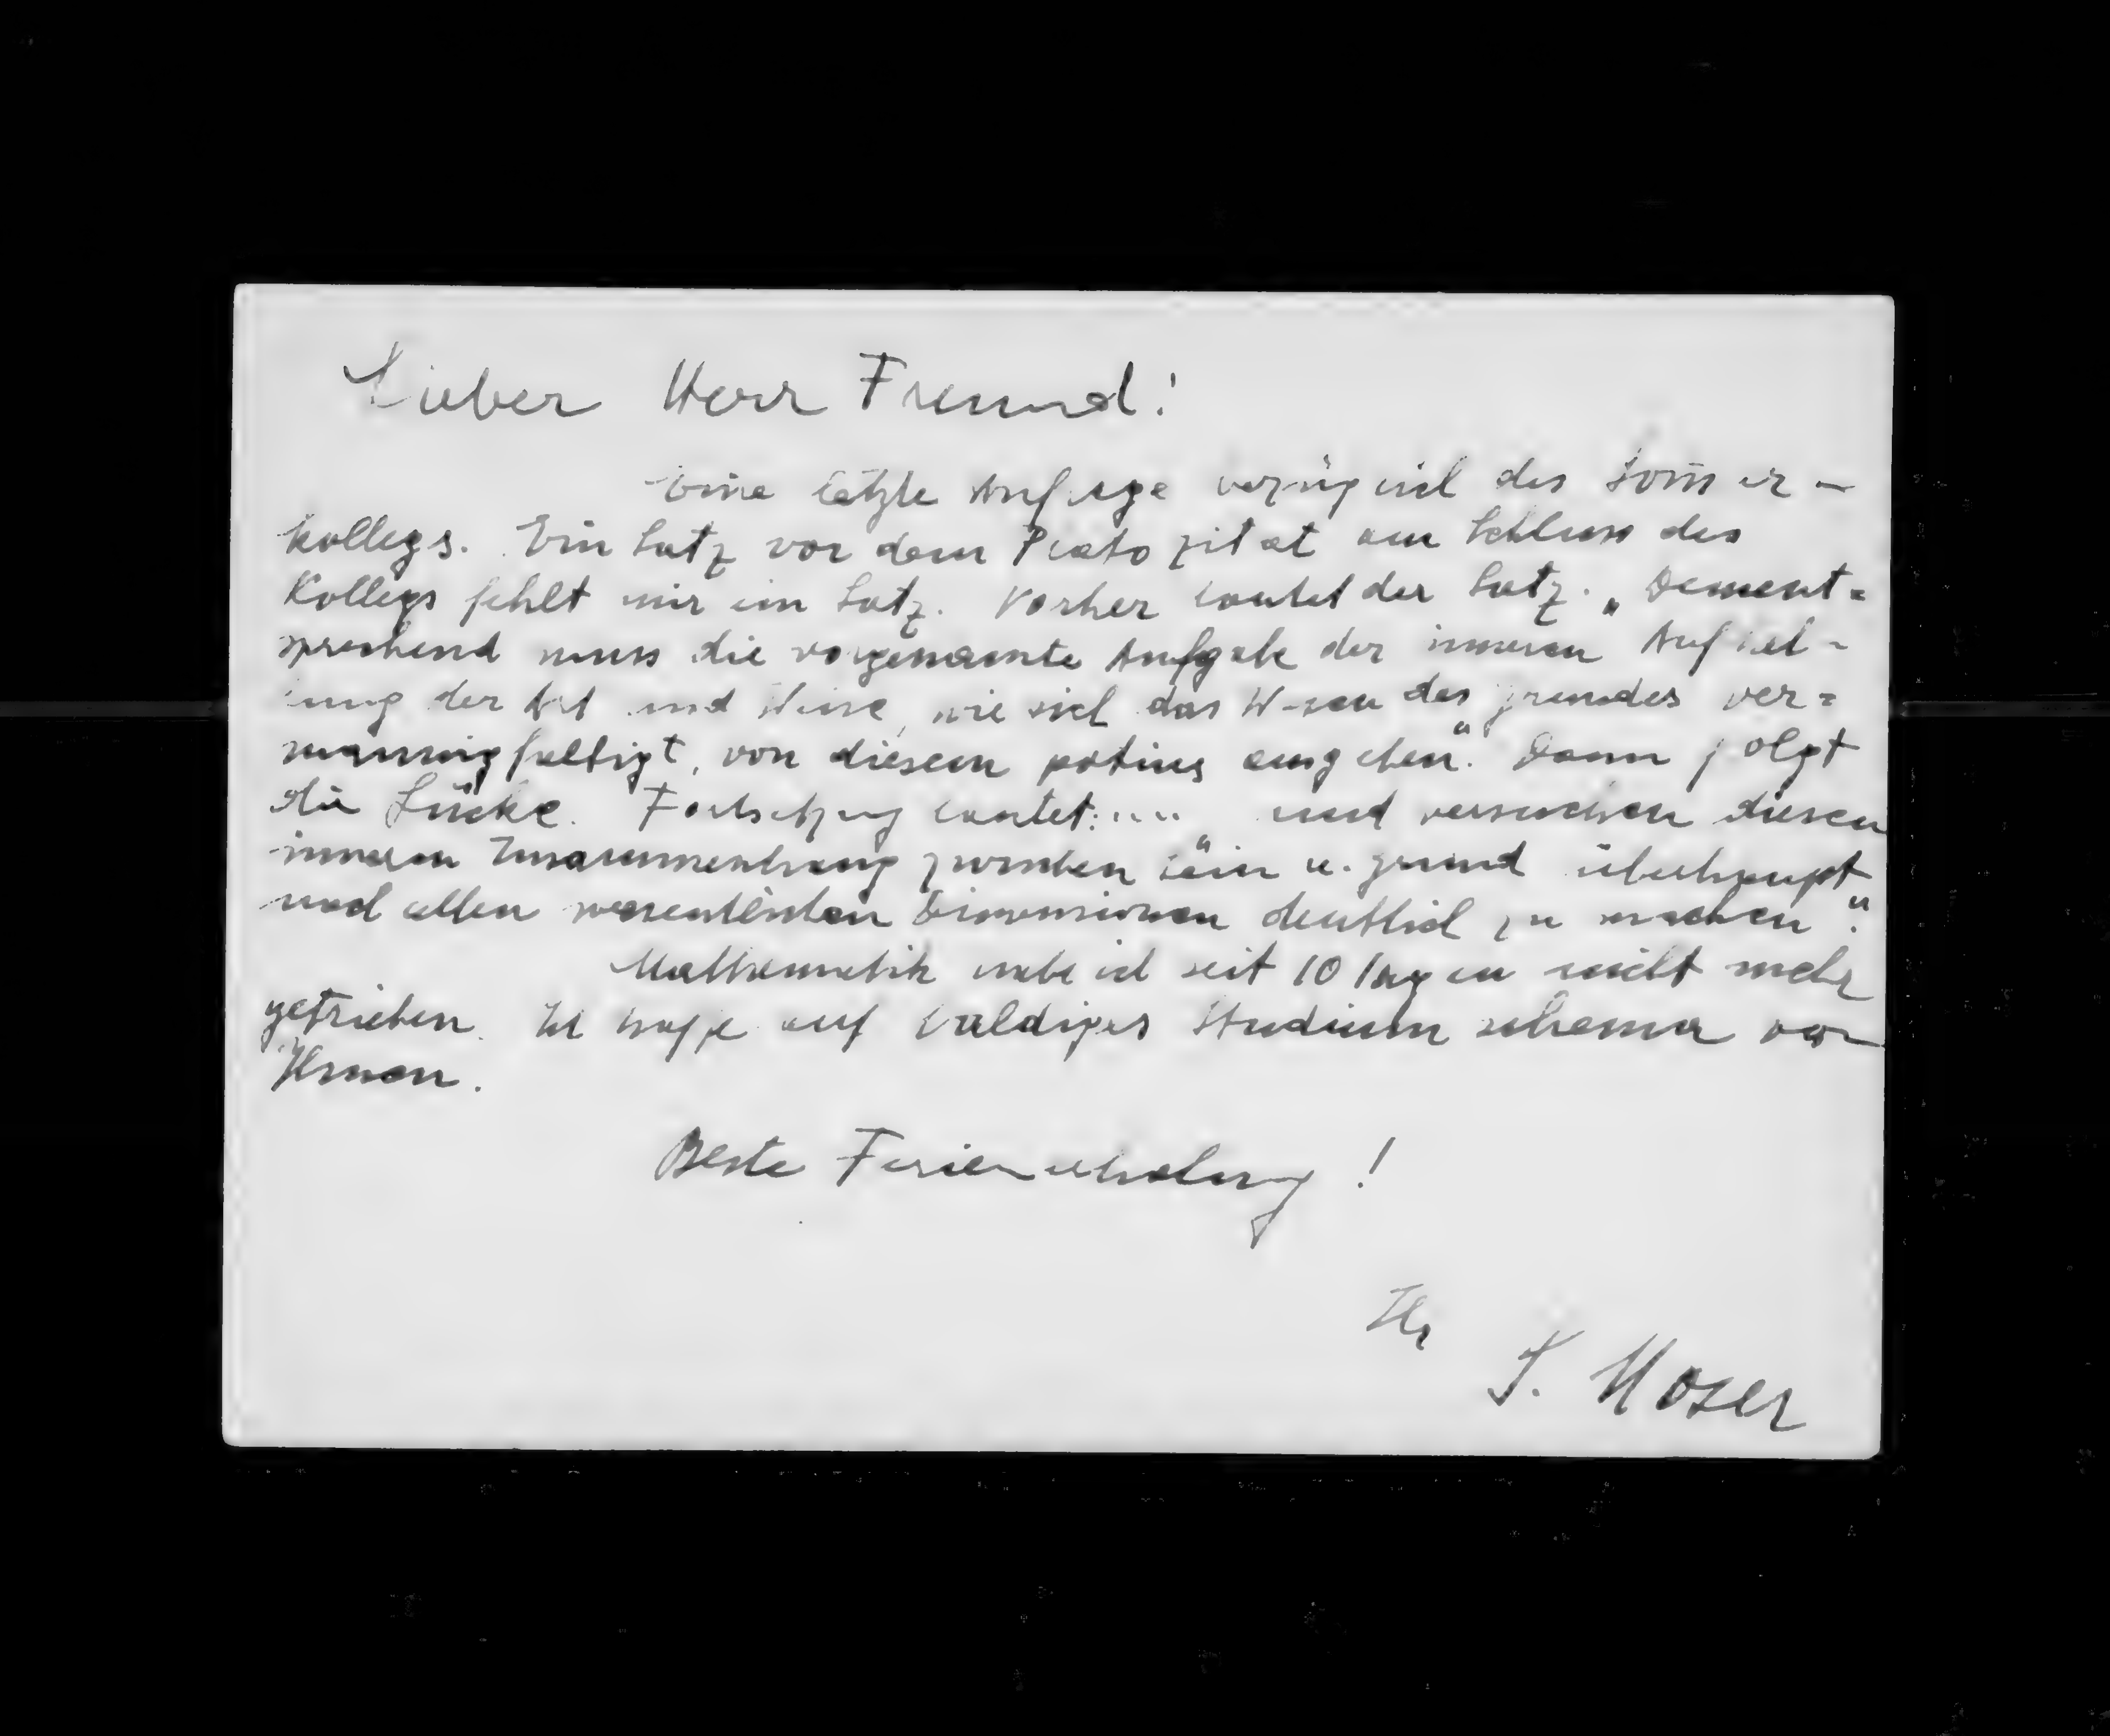 Lieber Herr Freund!
Eine letzte Anfrage bezüglich des Sommer-
kollegs. Ein Satz vor dem Platozitat am Schluss des
Kollegs fehlt mir ein Satz. Vorher lautet der Satz. „Dement=
sprechend muss die vorgenannte Aufgabe der inneren Aufhel-
lung der Art und Weise, wie sich das Wesen des Grundes ver=
mannigfaltigt, von diesem potius ausgehen". Dann folgt
die Lücke. Fortsetzung lautet: .... „und versuchen diesen
inneren Zusammenhang zwischen Sein u. Grund überhaupt
nach allen wesentlichen Dimensionen deutlich zu machen".
Mathematik habe ich seit 10 Tagen nicht mehr
getrieben. Ich hoffe auf baldiges Studiumschema von
Ihnen.
Beste Ferienerholung!
Ihr
S. Moser